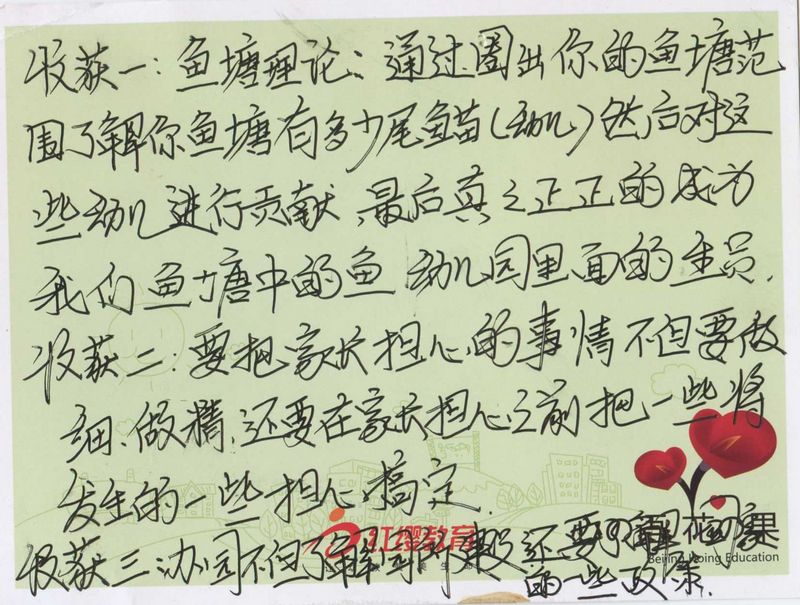 收获一:鱼塘理论:通过圈出你的鱼塘范
围了解你鱼塘有多少尾鱼苗(幼儿)然后对这
些幼儿进行贡献,最后真真正正的成为
我们鱼塘中的鱼 幼儿园里面的生员.
收获二.要把家长担心的事情不但要做
细.做精,还要在家长担心之前把一些将
发生的一些担心搞定.
收获三:办园不但了解 还要了解国家
的一些政策.
红缨教育
Beijing Hoing Education